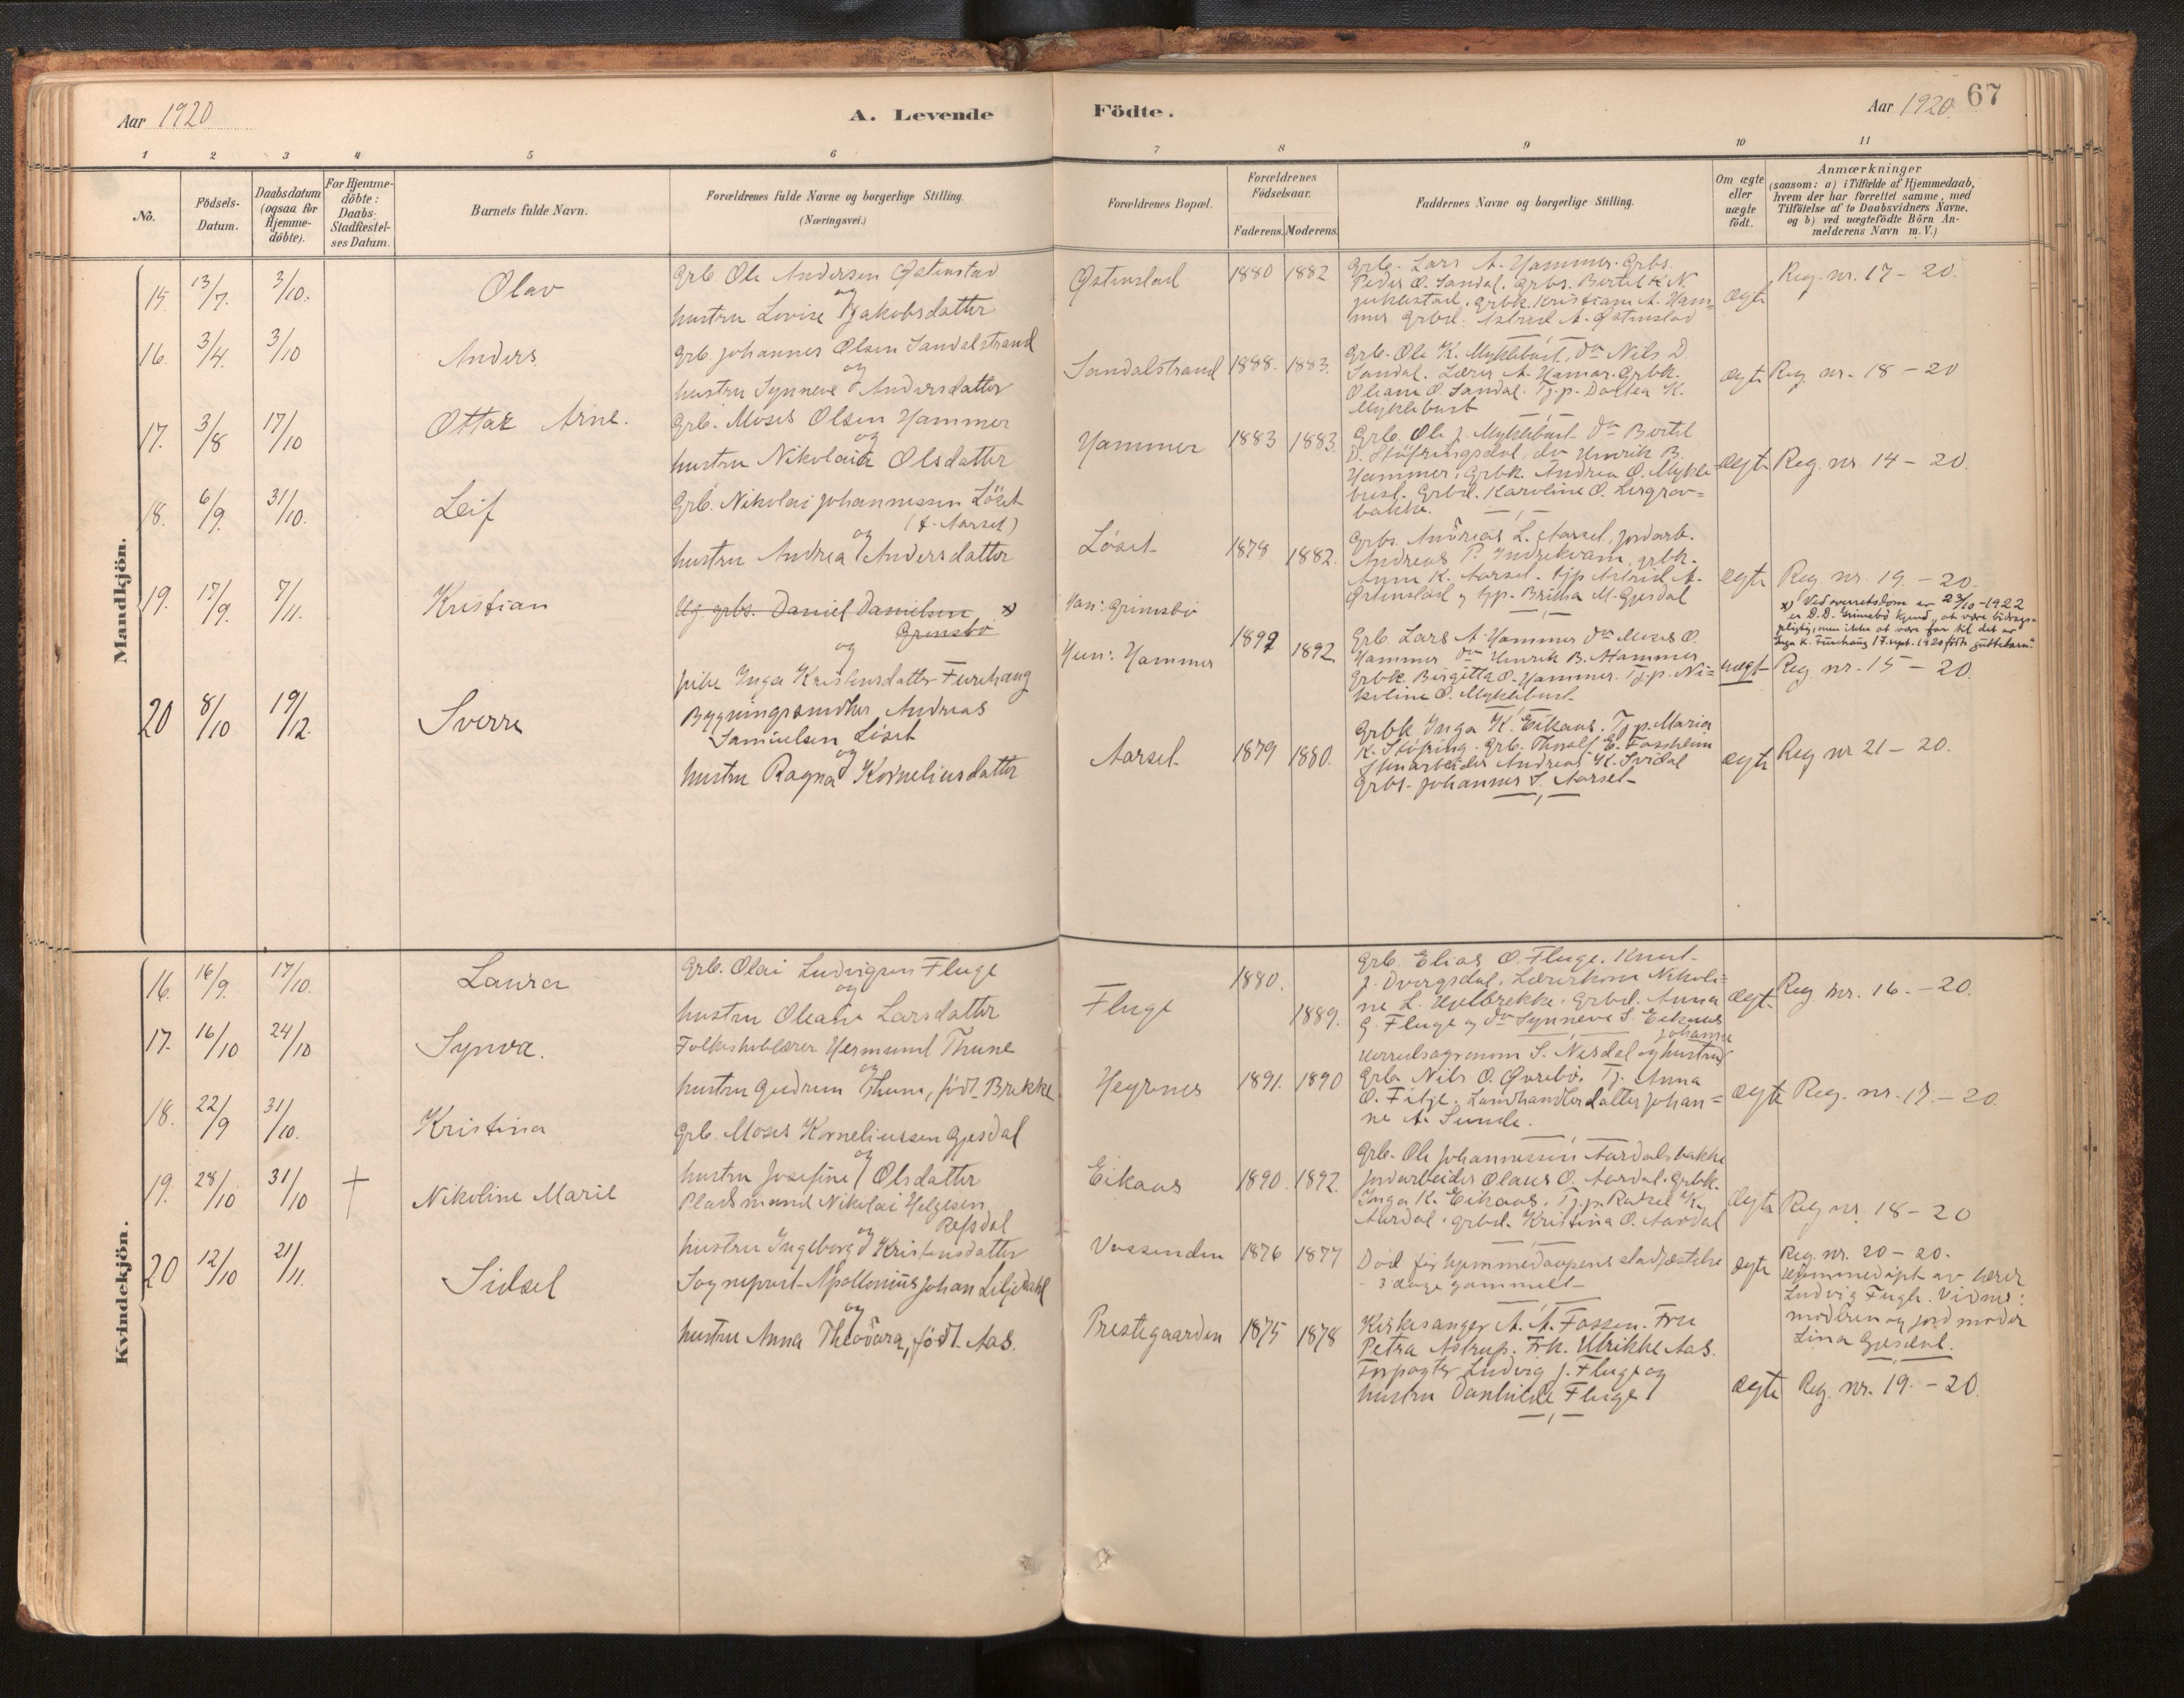 Aar 1920
A. Levende
Födte.
Aar 1920.
67
1 2 3 4 5 6 7 8 9 10 11
No.
Födsels-
Datum.
Daabsdatum
(ogsaa for
Hjemme-
döbte).
For Hjemme-
döbte:
Daabs-
Stadfæstel-
ses Datum.
Barnets fulde Navn.
Forældrenes fulde Navne og borgerlige Stilling.
(Næringsvei.)
Forældrenes Bopæl.
Forældrenes
Födselsaar.
Faderens. Moderens.
Faddernes Navne og borgerlige Stilling.
Om ægte
eller
uægte
födt.
Anmærkninger
(saasom: a) i Tilfælde af Hjemmedaab,
hvem der har forrettet samme, med
Tilföielse af to Daabsvidners Navne,
og b) ved uægtefödte Börn An-
melderens Navn m. V.)
Mandkjön.
15. 13/7. 3/10. Olav
Grb. Ole Andersen Østenstad
og
hustru Lovise Jakobsdatter
Østenstad 1880 1882
Grb. Lars A. Hammer. Grbs.
Peder O. Sandal. Grbs. Bertel N.
Juklestad. Grbk. Kristiane A. Ham=
mer Grbd. Astrid A. Østenstad
ægte
Reg. nr. 17 - 20.
16. 3/4. 3/10 Anders
Grb. Johannes Olsen Sandalstrand
og
hustru Synneve Andersdatter
Sandalstrand 1888. 1883.
Grb. Ole K. Myklebust, do Nils D.
Sandal. Lærer A. Hamar. Grbk.
Oliane O. Sandal. Tj.p. Dortea K.
Myklebust
ægte Reg. nr. 18 - 20
17. 3/8 17/10 Ottar Arne.
Grb. Moses Olsen Hammer
og
hustru Nikolaia Olsdatter
Hammer 1883 1883.
Grb. Ole J. Myklebust do Bertel
D. Støfringsdal, do Henrik B.
Hammer, Grbk. Andrea O. Mykle
bust. Grbd. Karoline O. Lergrov=
bakke.
ægte Reg. nr. 14 - 20.
18. 6/9. 31/10. Leif
Grb. Nikolai Johannessen Löset
(f. Aarset)
og
hustru Andrea Andersdatter
Løset 1878 1882.
Grbs. Andreas L. Aarset, jordarb.
Andreas P. Indrekvam, grbk.
Anne K. Aarset. tjp Astrid A.
Østenstad og tjp. Britha M. Gjesdal
ægte Reg. nr. 19 - 20.
19. 17/9. 7/11. Kristian
Ug. grbs. Daniel Danielsen x)
Grimsbø
og
pike Inga Kristensdatter Furehaug
Han: Grimsbø
Hun: Hammer
1897 1892
Grb. Lars A. Hammer do Moses O.
Hammer do Henrik B. Hammer
Grbk. Birgitta O. Hammer. Tj.p. Ni=
koline O. Myklebust
uægt
x) Ved overretsdom av 23/10-1922
er D. D. Grimsbø kjend „at være bidrags-
pligtig, men ikke at være far til det av
Inga K. Furehaug 17. sept. 1920 fødte guttebarn."
Reg nr. 15 - 20.
20 8/10 19/12. Sverre
Bygningssnedker Andreas
Samuelsen Löset
og
hustru Ragna Korneliusdatter
Aarset 1879 1880.
Grbk Inga K. Eikaas. Tjp. Maria
K. Støfring. Grb. E. Fossheim
Stenarbeider Andreas K. Svidal
Grbs. Johannes S. Aarset
ægte Reg nr 21 - 20.
Kvindekjön.
16. 16/9. 17/10. Laura
Grb. Olai Ludvigsen Fluge
og
hustru Oleane Larsdatter
Fluge 1880. 1889.
Grb. Elias O. Fluge. Knut
J. Dvergsdal, Lærerkone Nikoli=
ne L. Hjelbrekke. Grbd. Anna
G. Fluge og do Synneve S. Eikaas
ægte Reg. nr. 16. - 20.
17. 16/10 24/10 Synva.
Folkeskolelærer Hermund Thune
og
hustru Gudrun Thune, født Brekke
Heyrnes 1891. 1890
Herredsagronom S. Nesdal og hustru Johanne
Grb. Nils O. Øvrebø. Tj. Anna
O. Fitje. Landhandlerdatter Johan=
ne A. Sunde.
ægte Reg. nr. 17. - 20.
18. 22/9 31/10. Kristina
Grb. Moses Korneliussen Gjesdal
og
hustru Josefine Olsdatter
Eikaas 1890. 1892.
Grb. Ole Johannessen Aardalsbakke
Jordarbeider Olaus O. Aardal. Grbk.
Inga K. Eikaas. Tj.p. Rakel K.
Aardal. Grbd. Kristina O. Aardal
ægte Reg nr. 18 - 20
19. 28/10 31/10 † Nikoline Marie
Pladsmand Nikolai Helgesen
Refsdal
og
hustru Ingeborg Kristensdatter
Vassenden 1876 1877
Död før hjemmedaapens stadfæstelse
- 3 dage gammel -
ægte
Reg. nr. 20 - 20.
Hjemmedøpt av lærer
Ludvig Fugle. Vidner:
moderen og jordmoder
Lina Gjesdal.
20 12/10 21/11. Sidsel
Sogneprest Apollonius Johan Liljedahl
og
hustru Anna Theodora, født Aas.
Prestegaarden 1875 1878
Kirkesanger A. A. Fossen. Fru
Petra Astrup. Frk. Ulrikke Aas.
Forpagter Ludvig J. Fluge og
hustru Danhilde Fluge
ægte Reg. nr. 19. - 20.